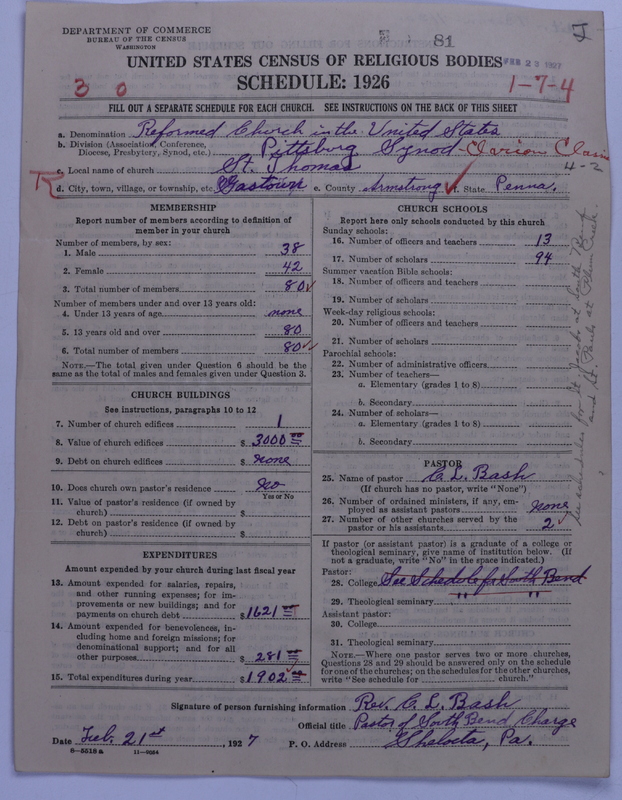 DEPARTMENT OF COMMERCE
BUREAU OF THE CENSUS
WASHINGTON
81
FEB 23 1927
UNITED STATES CENSUS OF RELIGIOUS BODIES
3 0
SCHEDULE: 1926
1-7-4
FILL OUT A SEPARATE SCHEDULE FOR EACH CHURCH. SEE INSTRUCTIONS ON THE BACK OF THIS SHEET
a. Denomination Reformed Church in the United States
b. Division (Association, Conference, Diocese, Presbytery, Synod, etc.) Pittsburg Synod - Clarion Classis
4-2
c. Local name of church St. Thomas
R
d. City, town, village, or township, etc. Gastown e. County Armstrong f. State Penna.
MEMBERSHIP
Report number of members according to definition of member in your church
Number of members, by sex:
1. Male 38
2. Female 42
3. Total number of members 80
Number of members under and over 13 years old:
4. Under 13 years of age none
5. 13 years old and over 80
6. Total number of members 80
NOTE.—The total given under Question 6 should be the same as the total of males and females given under Question 3.
CHURCH BUILDINGS
See instructions, paragraphs 10 to 12
7. Number of church edifices 1
8. Value of church edifices $ 3000 00
9. Debt on church edifices $ none
10. Does church own pastor's residence No
Yes or No
11. Value of pastor's residence (if owned by church) $
12. Debt on pastor's residence (if owned by church) $
EXPENDITURES
Amount expended by your church during last fiscal year
13. Amount expended for salaries, repairs, and other running expenses; for improvements or new buildings; and for payments on church debt $ 1621 00
14. Amount expended for benevolences, including home and foreign missions; for denominational support; and for all other purposes $ 281 00
15. Total expenditures during year $ 1902 00
CHURCH SCHOOLS
Report here only schools conducted by this church
Sunday schools:
16. Number of officers and teachers 13
17. Number of scholars 94
Summer vacation Bible schools:
18. Number of officers and teachers
19. Number of scholars
Week-day religious schools:
20. Number of officers and teachers
21. Number of scholars
Parochial schools:
22. Number of administrative officers
23. Number of teachers—
a. Elementary (grades 1 to 8)
b. Secondary
24. Number of scholars—
a. Elementary (grades 1 to 8)
b. Secondary
See schedules for St. Jacobs at South Bend
and St. Pauls at Plum Creek.
PASTOR
25. Name of pastor C. L. Bash
(If church has no pastor, write "None")
26. Number of ordained ministers, if any, employed as assistant pastors none
27. Number of other churches served by the pastor or his assistants 2
If pastor (or assistant pastor) is a graduate of a college or theological seminary, give name of institution below. (If not a graduate, write "No" in the space indicated.)
Pastor:
28. College See Schedule for South Bend
29. Theological seminary " "
Assistant pastor:
30. College
31. Theological seminary
NOTE.—Where one pastor serves two or more churches, Questions 28 and 29 should be answered only on the schedule for one of the churches; on the schedules for the other churches, write "See schedule for church."
Signature of person furnishing information Rev. C. L. Bash
Official title Pastor of South Bend Charge
Date Feb. 21st, 1927 P. O. Address Shelocta, Pa.
8-5518 a 11-9254